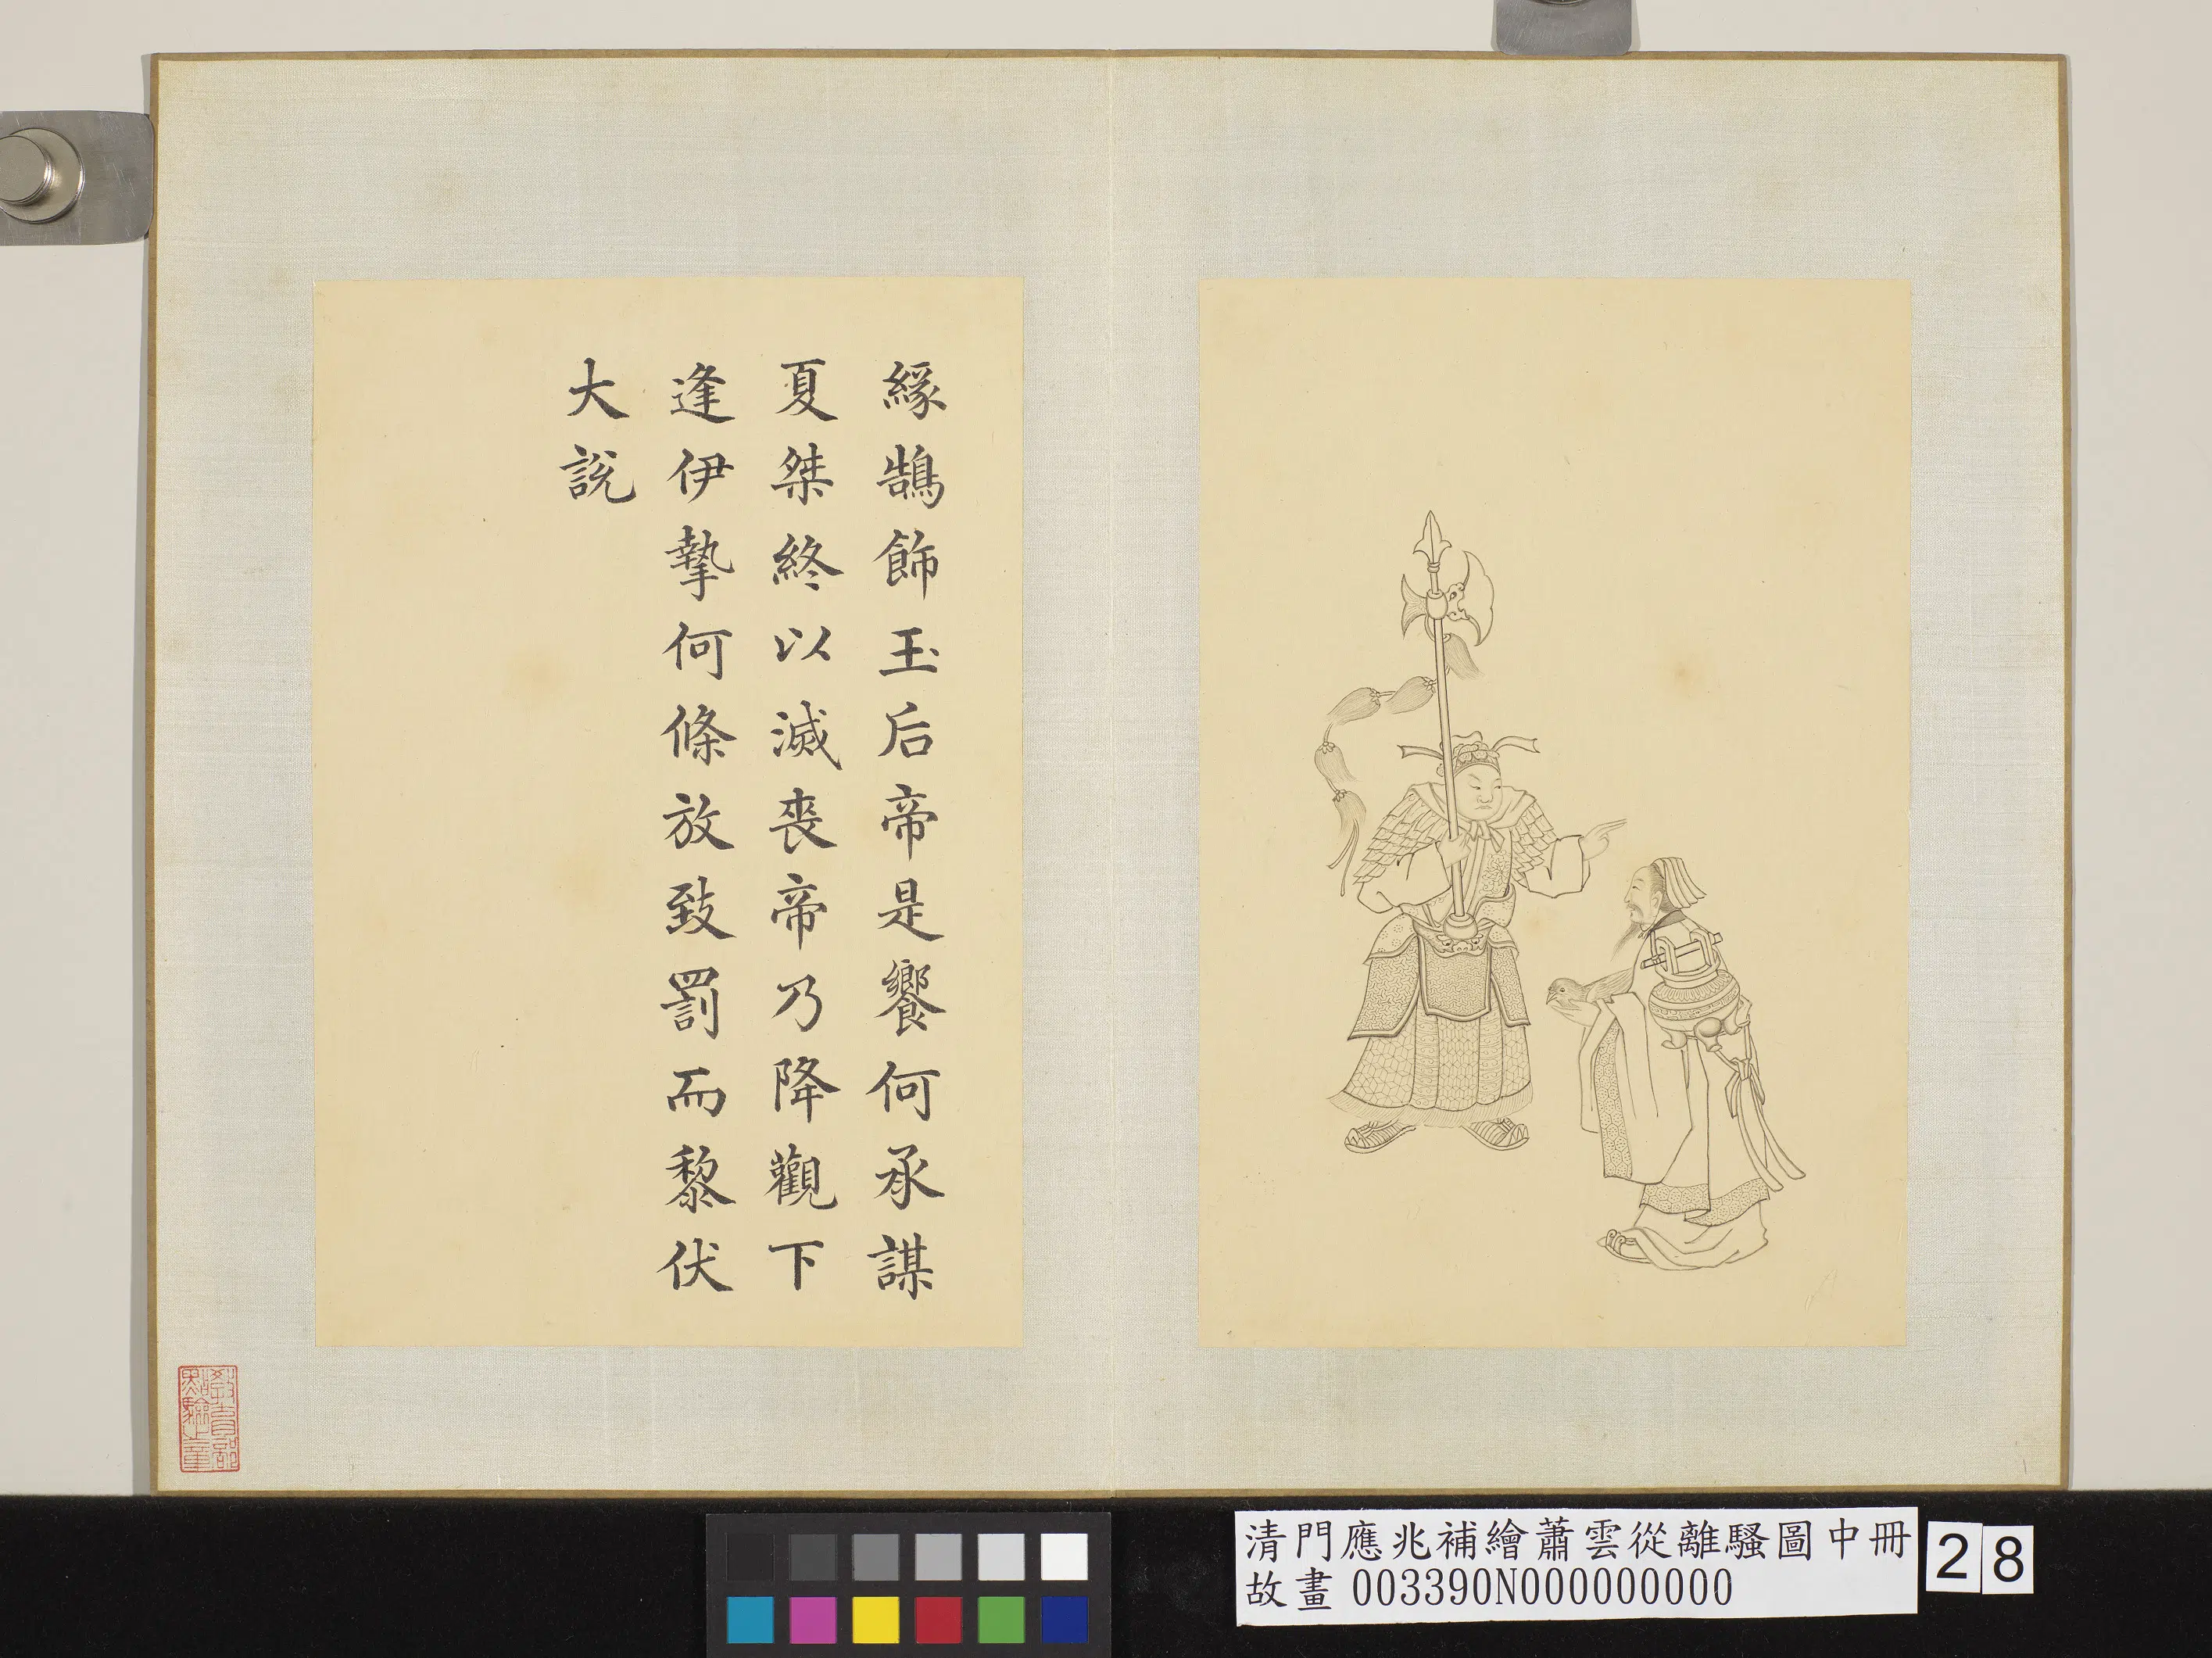 緣鵠飾玉后帝是饗何承謀
夏桀終以滅喪帝乃降觀下
逢伊摯何條放致罰而黎伏
大說
教育部
點驗之章
清門應兆補繪蕭雲從離騷圖中冊
故畫 003390N000000000
28